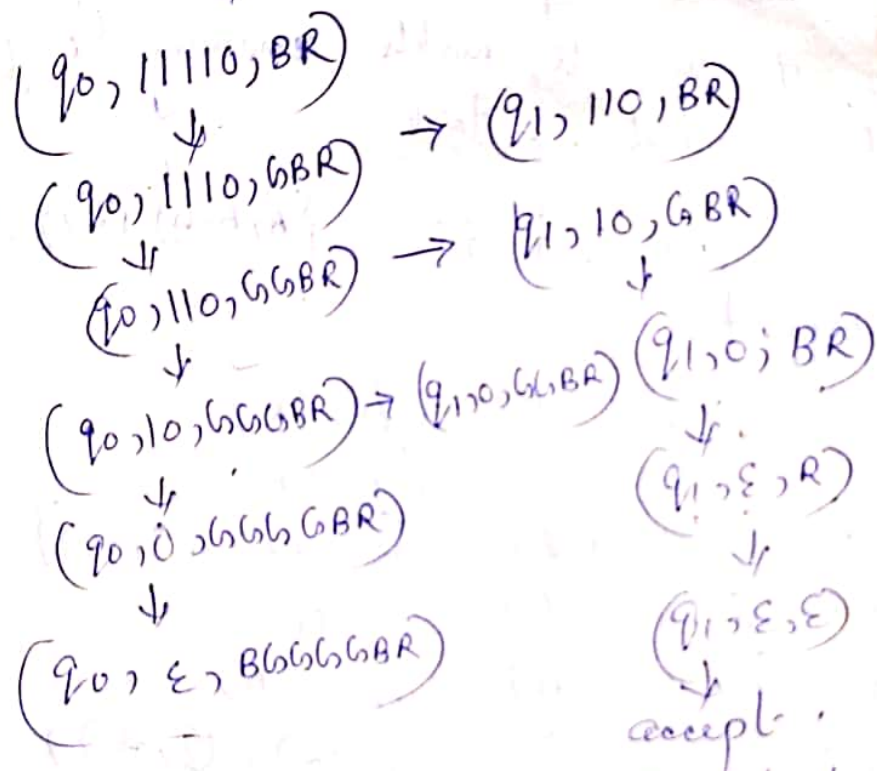 (q0, 11110, BR)
↓
(q0, 1110, GBR) → (q1, 110, BR)
↓
(q0, 110, GGBR) → (q1, 10, GBR)
↓ ↓
(q0, 10, GGGBR) → (q1, 0, GGBR) (q1, 0, BR)
↓ ↓
(q0, 0, GGGGBR) (q1, ε, R)
↓ ↓
(q0, ε, BGGGGBR) (q1, ε, ε)
↓
accept.